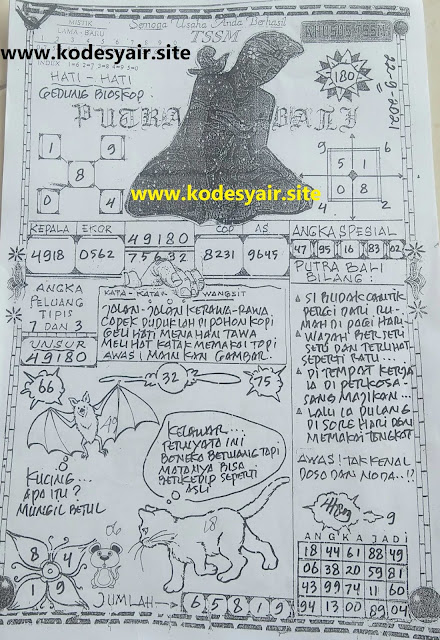 MISTIK
LAMA - BARU
INDEX
Semoga Usaha Anda Berhasil
TSSM
KHUSUS TSSM
www.kodesyair.site
HATI - HATI
GEDUNG BIOSKOP :
180
22-9-2021
PUTRA BALI
1 9
8
0 4
9 6
5 1
0 8
4 2
www.kodesyair.site
KEPALA EKOR
4918 0562
49180
75632
COP AS
8231 9645
ANGKA SPESIAL
47 95 16 83 02
ANGKA
PELUANG
TIPIS
7 DAN 3
UNSUR
49180
KATA - KATA WANGSIT
JALAN - JALAN KERAWA - RAWA
CAPEK DUDUKLAH DI POHON KOPI
GELI HATI MENAHAN TAWA
MELIHAT KATAK MEMAKAI TOPI
AWAS! MAINKAN GAMBAR.
PUTRA BALI
BILANG :
SI BUDAK CANTIK
PERGI DARI RU-
MAH DI PAGI HARI
WAJAH BERSERI
SERI DAN TERLIHAT
SEPERTI RATU...
DI TEMPAT KERJA
IA DI PERKOSA
SANG MAJIKAN...
LALU IA PULANG
DI SORE HARI DAN
MEMAKAI TONGKAT
AWAS! TAK KENAL
DOSA DAN NODA..!?
66
32
75
40
KUCING...
APA ITU ?
MUNGIL BETUL
KELAWAR...
TERNYATA INI
BONEKA BETUANG TAPI
MATANYA BISA
BERKEDIP SEPERTI
ASLI
18
06
8 4
1 9
JUMLAH
6 5 8 1 9
9
ANGKA JADI
18 44 61 88 49
06 38 20 59 81
43 99 74 11 60
94 13 00 89 04